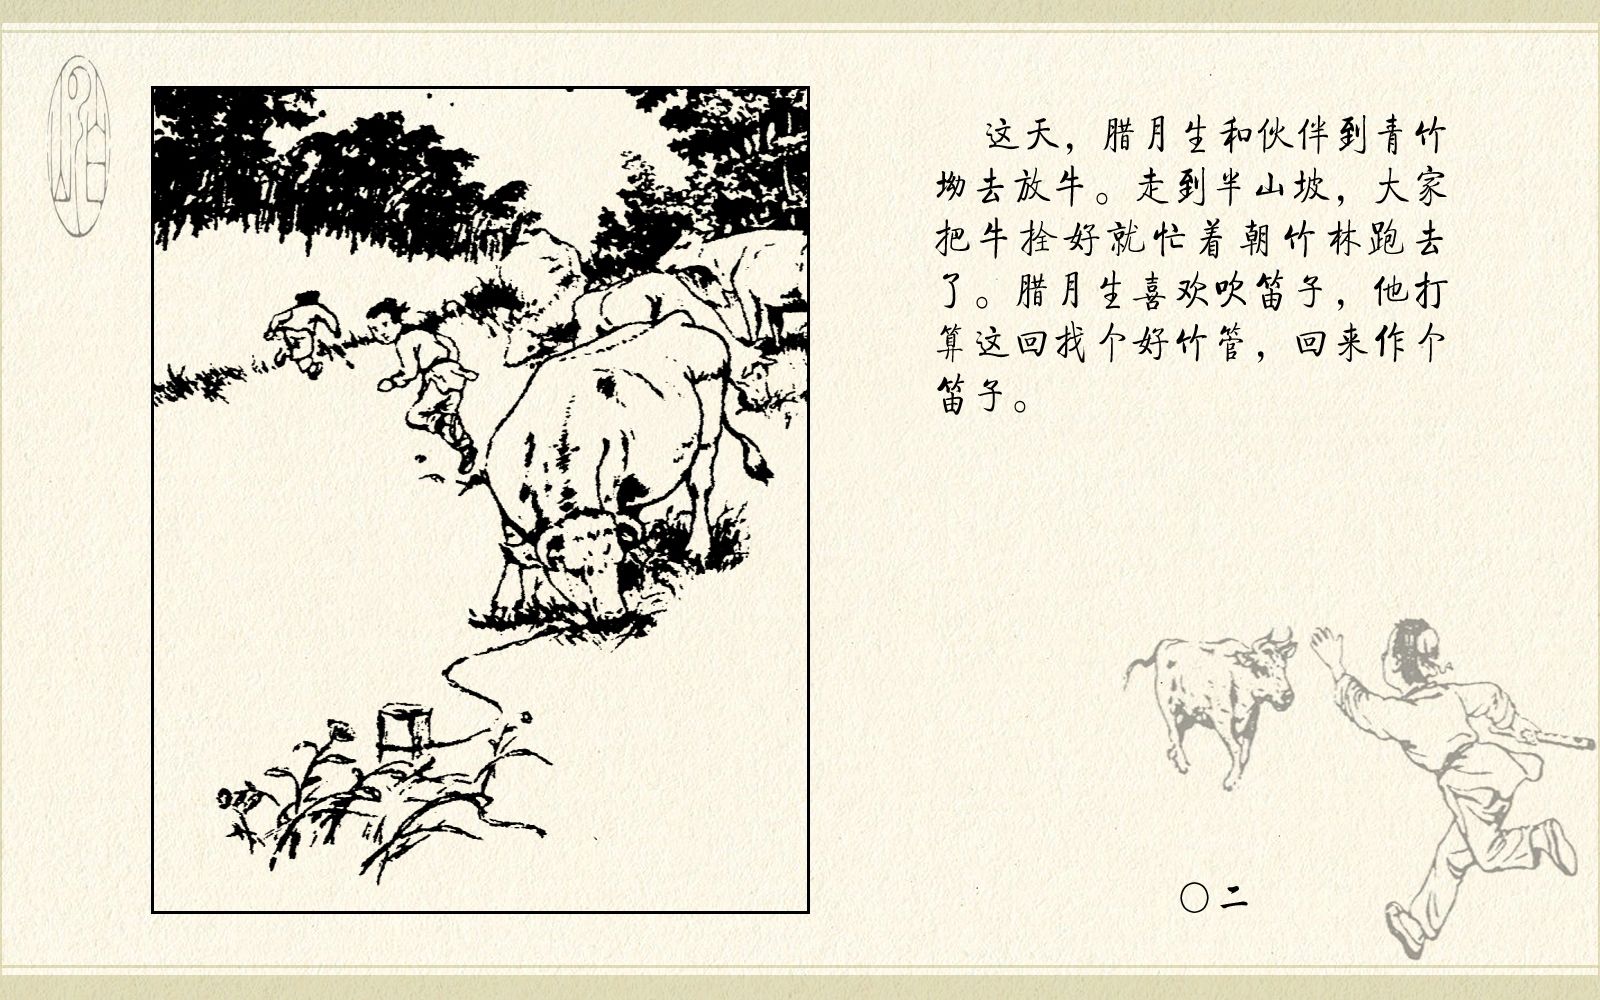 这天，腊月生和伙伴到青竹
坳去放牛。走到半山坡，大家
把牛拴好就忙着朝竹林跑去
了。腊月生喜欢吹笛子，他打
算这回找个好竹管，回来作个
笛子。
〇二